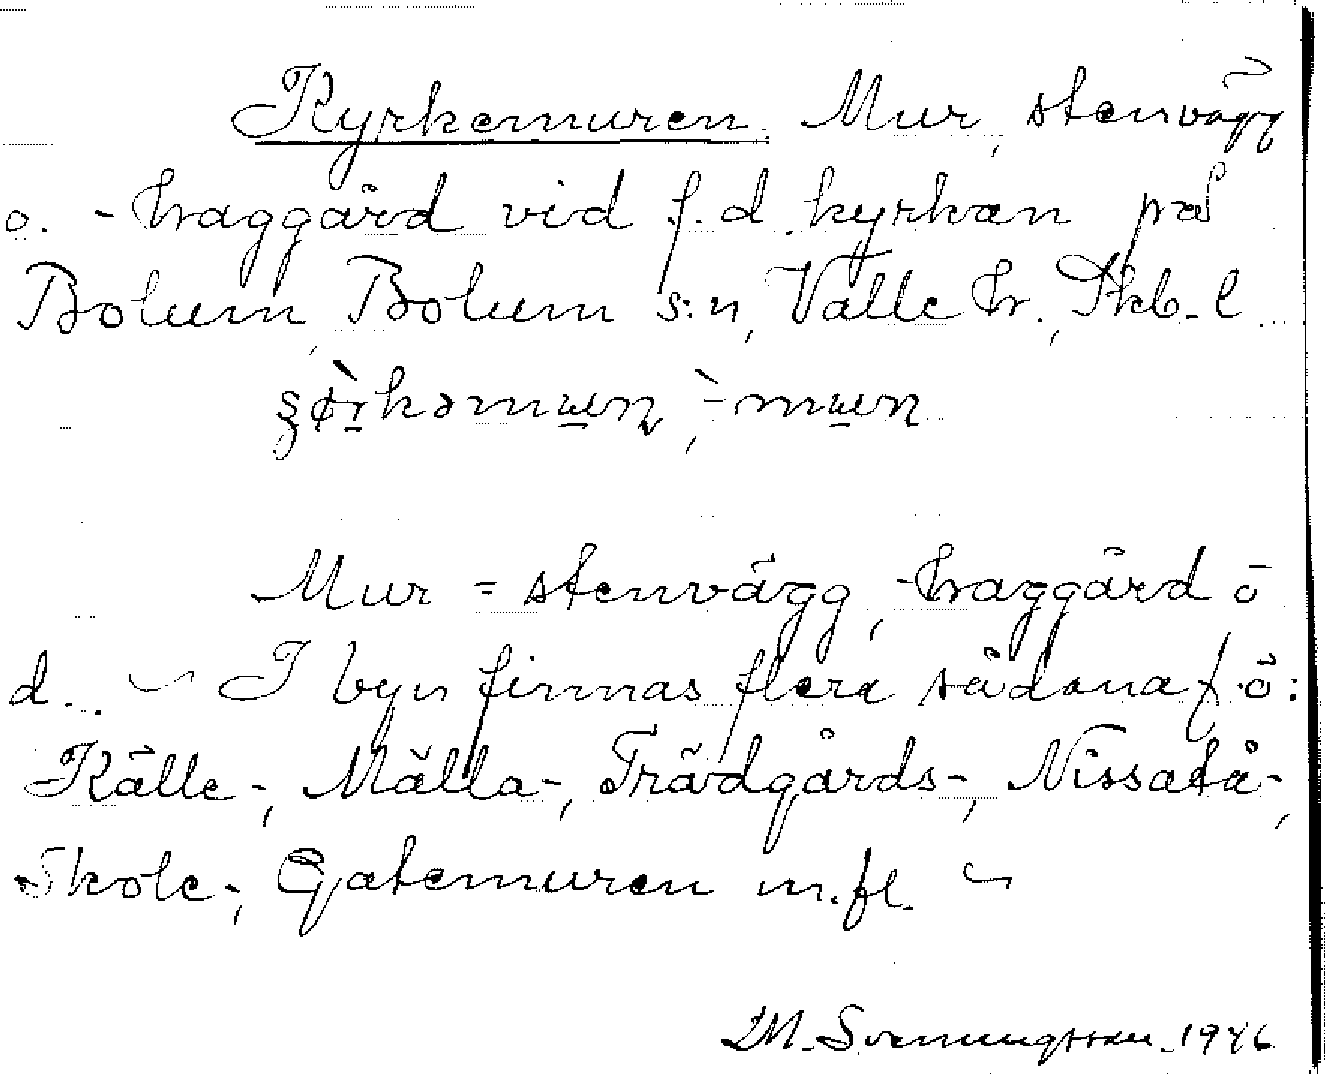 Kyrkemuren. Mur, stenvägg
o. -traggård vid f.d. kyrkan på
Bolum, Bolum s:n, Valle hr., Skb. l
Mur = stenvägg, -traggård o
d. I byn finnas flera sådana f ö:
Källe-, Mälla-, Trädgårds-, Nissatå-,
Skole-, Gatemuren m.fl.
M. Svenungsson 1946